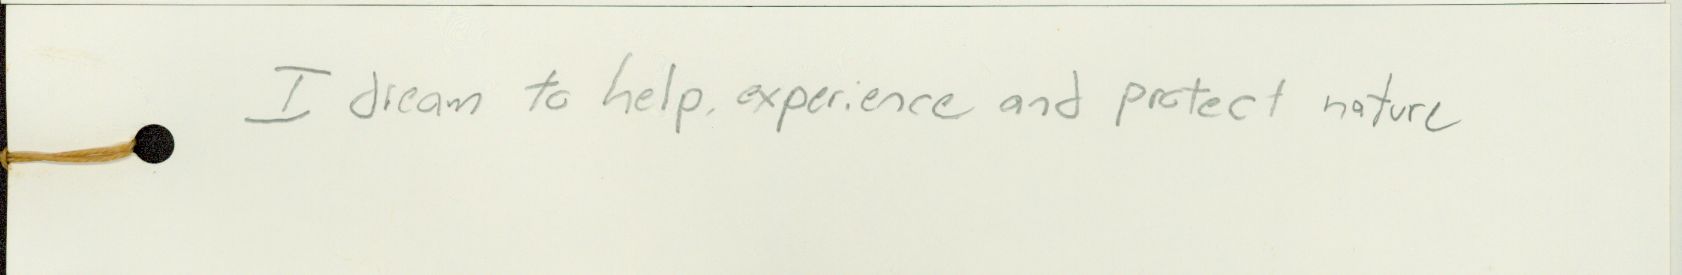 I dream to help, experience and protect nature